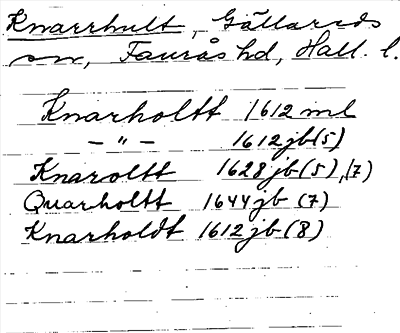 Knarrhult, Gällareds
sn, Faurås hd, Hall. l.
Knarholtt 1612 ml
— " — 1612 jb (5)
Knaroltt 1628 jb (5), (7)
Quarholtt 1644 jb (7)
Knarholdt 1612 jb (8)